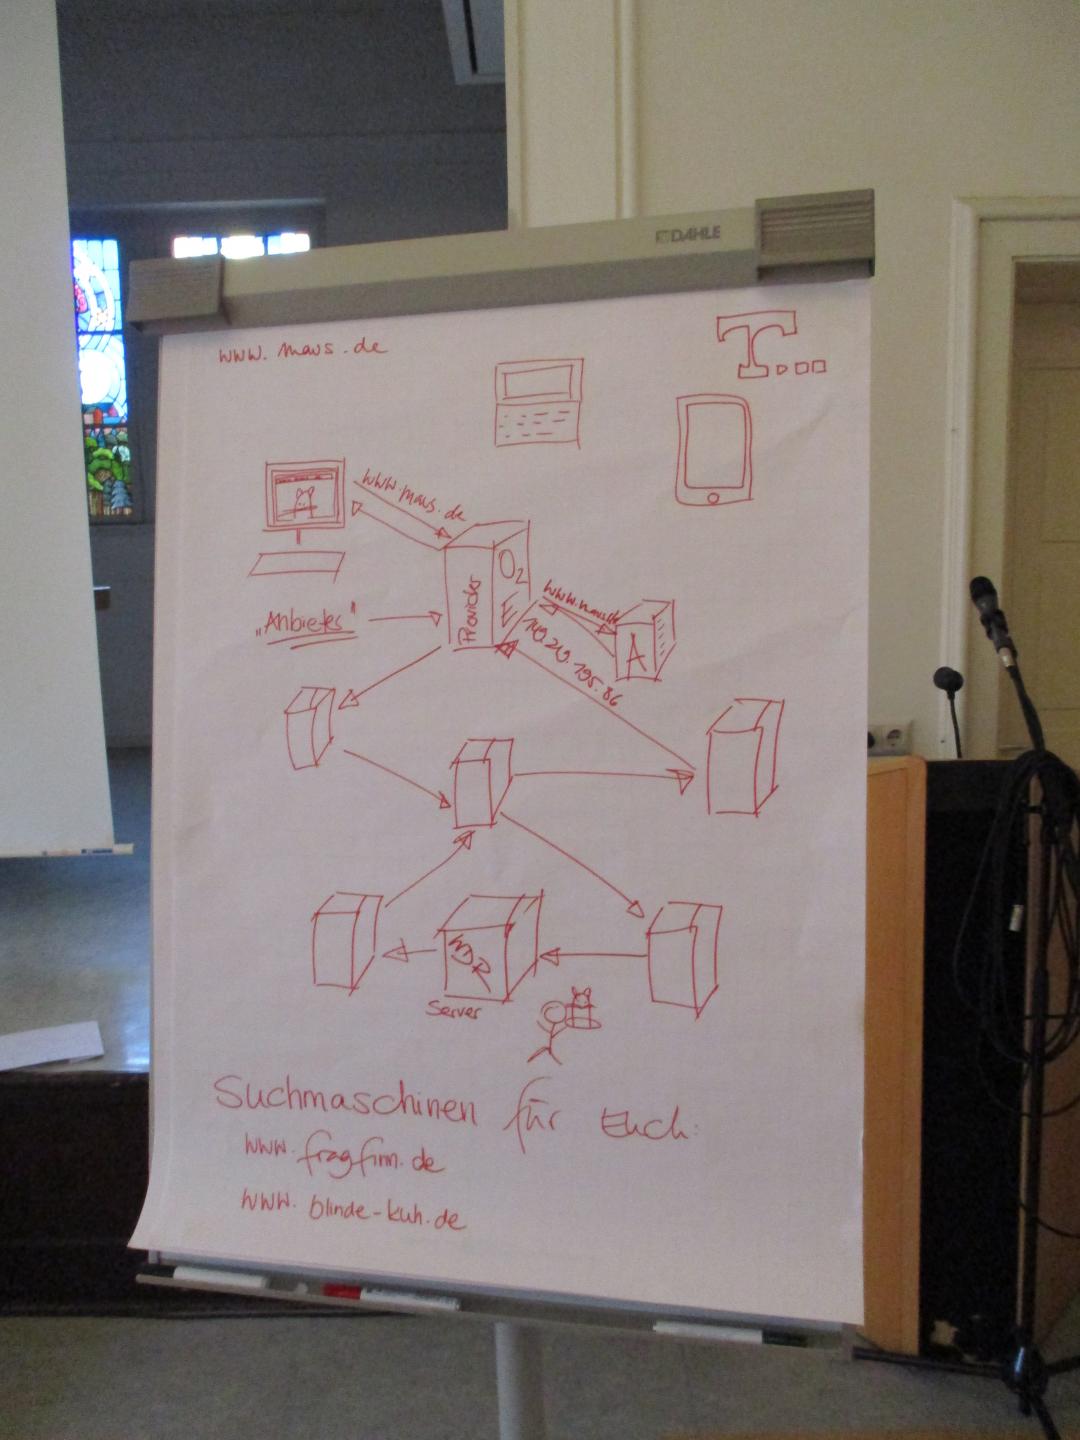 DAHLE
www. maus. de
T...
www.maus.de
O2
Provider
E
"Anbieter"
www.maus.de
A
Server
Suchmaschinen für Euch:
www. fragfinn.de
www. blinde-kuh.de